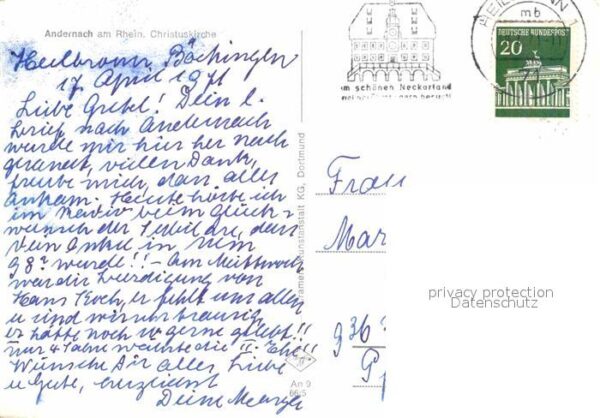 Andernach am Rhein. Christuskirche
Heilbronn Böckingen
17. April 1971
Liebe Gretel! Dein l.
Brief nach Andernach
wurde mir hier her nach
gesandt, vielen Dank,
freute mich, dass alles
ankam. Heute hörte ich
im Radio beim Glück-
wunsch der Jubilare, dass
Dein Onkel in
98? wurde!! - Am Mittwoch
war die Beerdigung von
Hans Koch, er fehlt uns allen
u sind wir sehr traurig
er hätte noch so gerne gelebt!!
nur 4 Jahre währte die II. Ehe!!
Wünsche Dir alles Liebe
u Gute, herzlichst
Deine
Kunstanstalt KG, Dortmund
An 9
66/5
am schönen Neckarstrand
HEILBRONN 1
mb
DEUTSCHE BUNDESPOST
20
Frau
Mar
936
privacy protection
Datenschutz